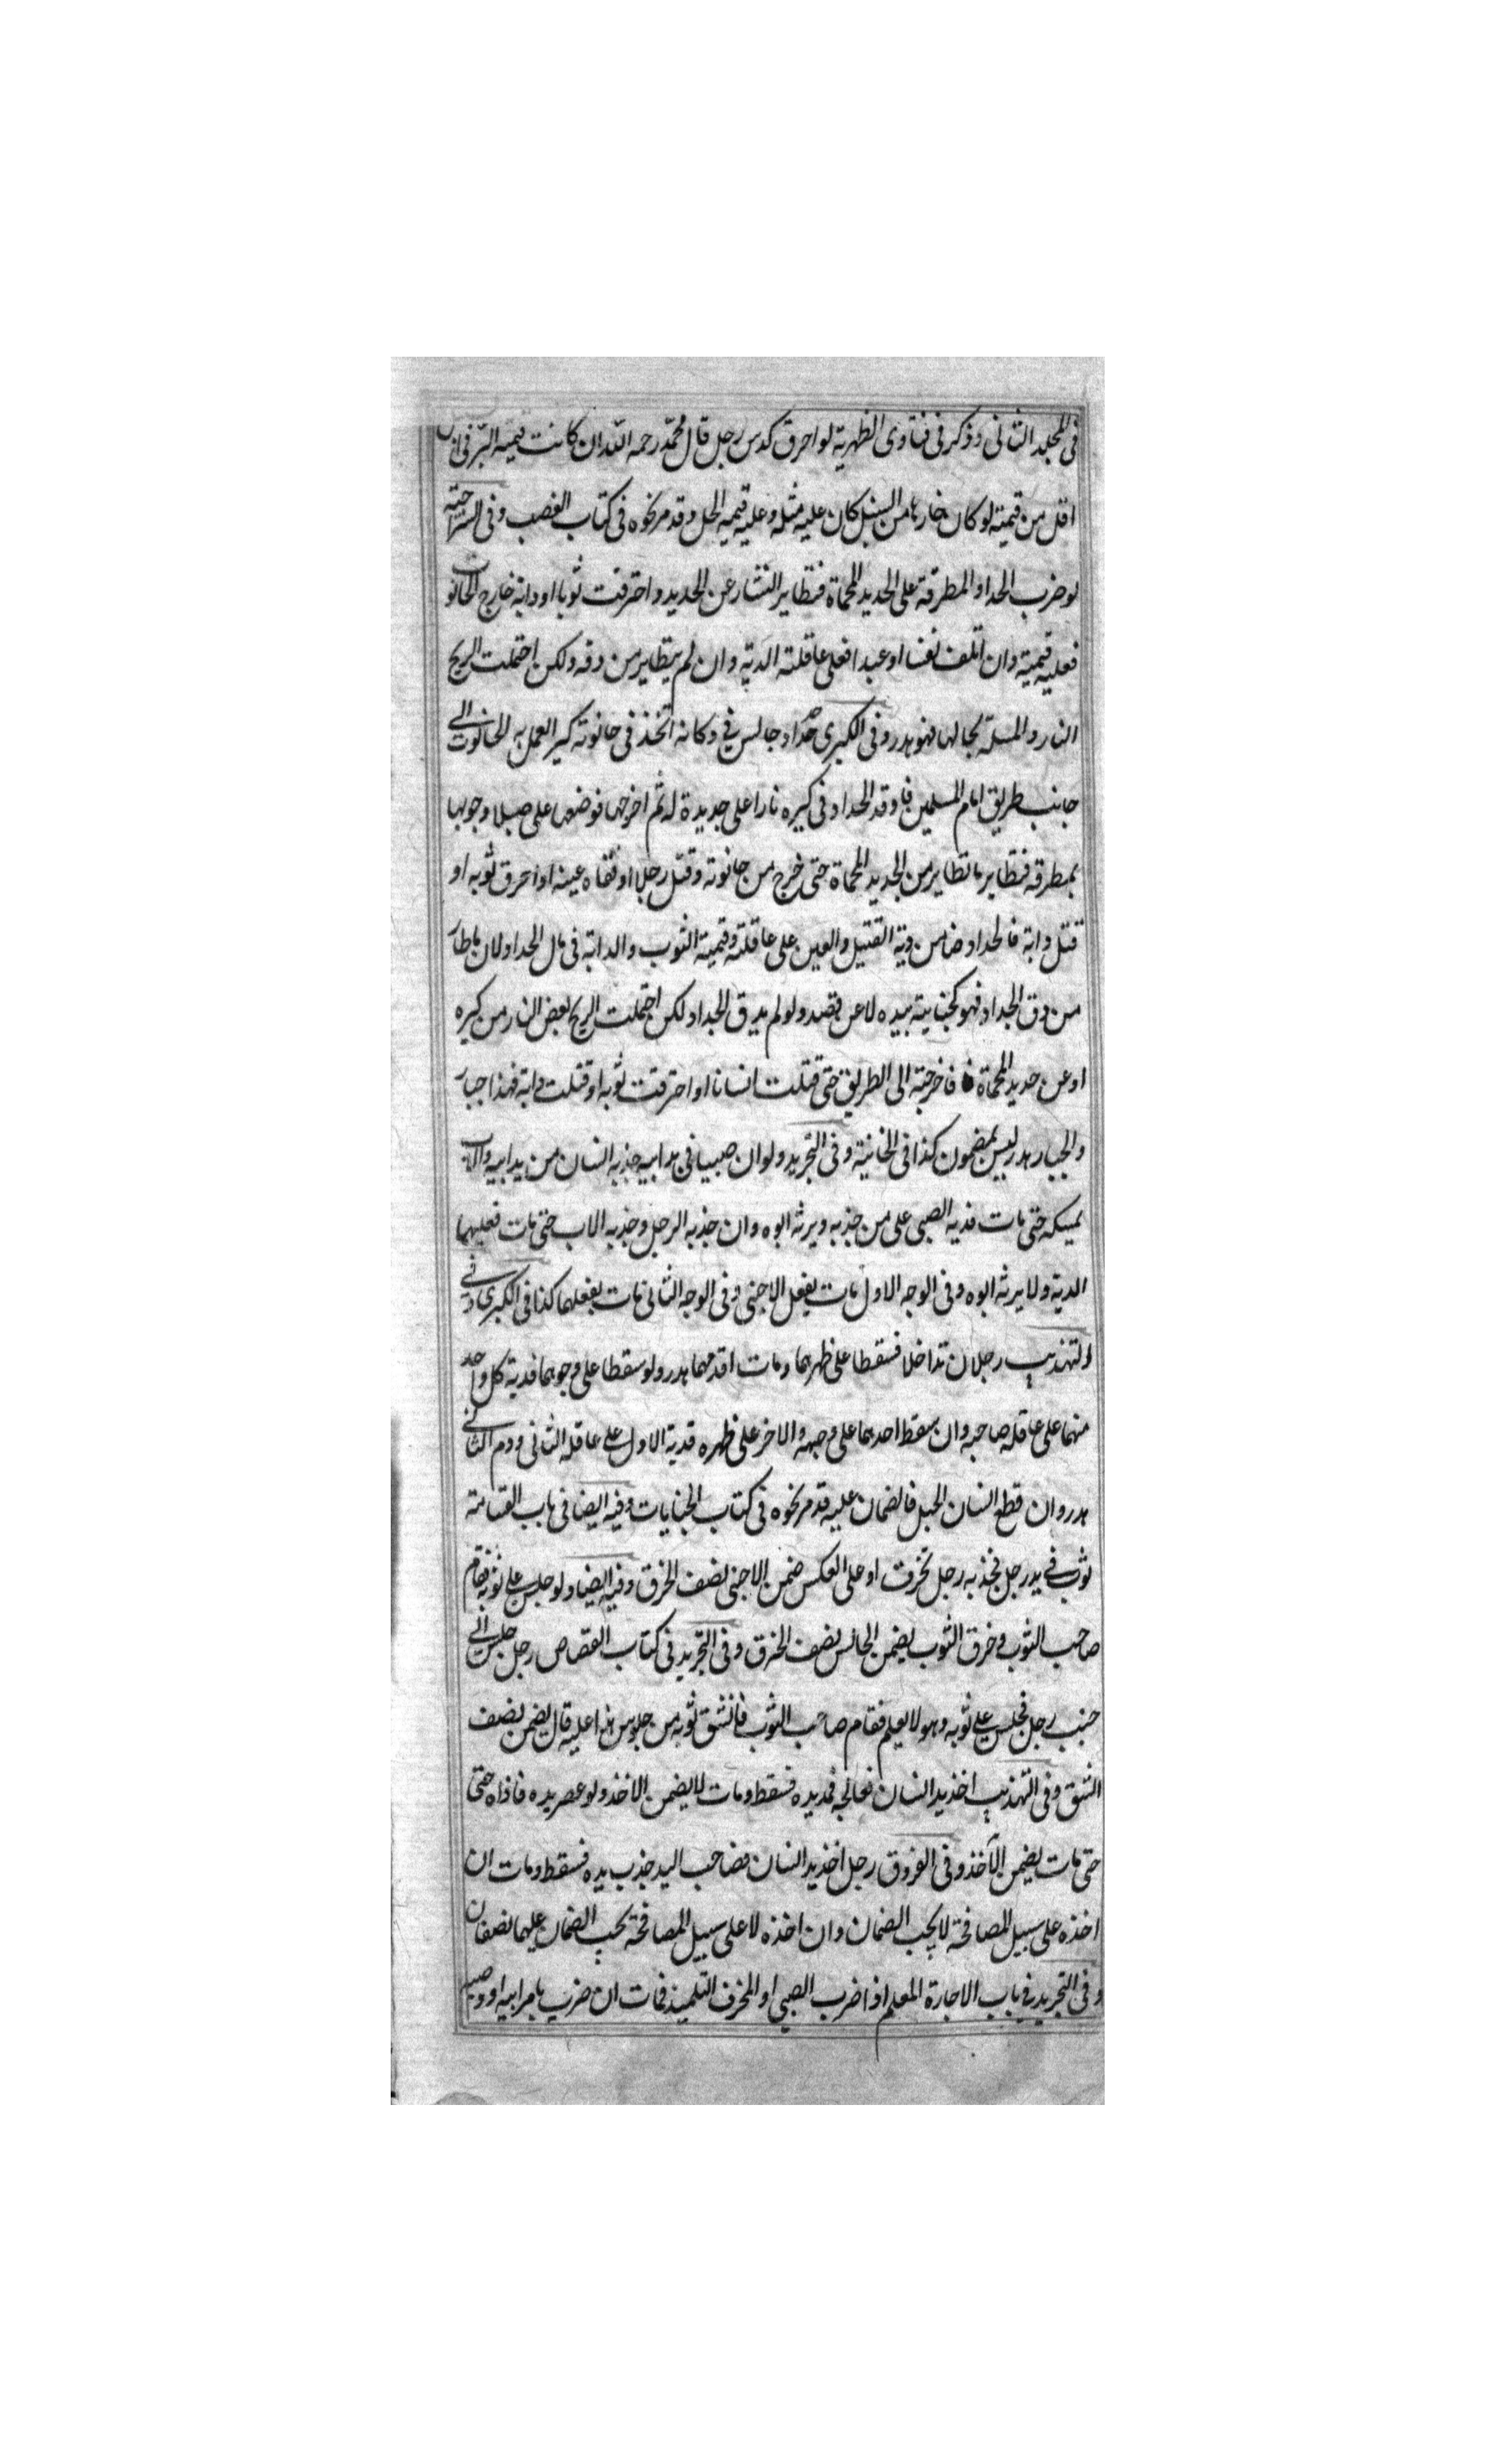 فى المجلد الثانى وذكر فى فتاوى الظهرية لو احرق كدس رجل قال محمّد رحمه الله ان كانت قيمة البرّ فى
اقل من قيمته لو كان خارجا من السنبل كان عليه مثله وعليه قيمة الحل وقد مر نحوه فى كتاب الغصب وفى السراجيته
لو ضرب الحداد المطرقة على الحديد المحماة فتطاير النشار عن الحديد واحترقت ثوبا او دابة خارج الحانوت
فعليه قيمته وان اتلف نفسا او عبدا فعلى عاقلته الدية وان لم يتطاير من دقه ولكن احتملت الريح
النار والمسئلة بحالها فهو هدر وفى الكبرى حداد جالس فى دكانه اتخذ فى حانوته كير العمل به الحانوت الى
جانب طريق امام المسلمين فاوقد الحداد فى كيره نارا على حديدة له ثم اخرجها فوضعها على
بمطرقه فتطاير ما تطاير من الحديد المحماة حتى خرج من حانوته وقتل رجلا او فقاه عينه او احرق ثوبه او
قتل دابة فالحداد ضامن دية القتيل والعين على عاقلته وقيمة الثوب والدابة فى مال الحداد لان ما طار
من دق الحداد فهو كجنايته بيده لا عن قصد ولو لم يدق الحداد لكن احتملت الريح بعض النار من كيره
او عن حديد المحماة فاخرجته الى الطريق حتى قتلت انسانا او احترقت ثوبه او قتلت دابة فهذا جبار
والجبار هدر ليس بمضمون كذا فى الخانية وفى التجريد ولو ان صبيا فى يد ابيه جذبه انسان من يد ابيه والاب
يمسكه حتى مات فدية الصبى على من جذبه ويرثه ابوه وان جذبه الرجل وجذبه الاب حتى مات فعليهما
الدية ولا يرثه ابوه وفى الوجه الاول مات بفعل الاجنبى وفى الوجه الثانى مات بفعلهما كذا فى الكبرى وفى
التهذيب رجلان تداخلا فسقطا على ظهرهما ومات اقدمهما هدر ولو سقطا على وجوههما فدية كل واحد
منهما على عاقلة صاحبه وان سقط احدهما على وجهه والاخر على ظهره فدية الاول على عاقلة الثانى ودم الثانى
هدر وان قطع انسان الحبل فالضمان عليه قد مر نحوه فى كتاب الجنايات وفيه ايضا فى باب القسامة
ثوب فى يد رجل فجذبه رجل تخرقت او على العكس ضمن الاجنبى نصف الخرق وفيه ايضا ولو جلس على ثوبه فقام
صاحب الثوب وخرق الثوب يضمن الجالس نصف الخرق وفى التجريد فى كتاب القصاص رجل جلس الى
جنب رجل فجلس على ثوبه وهو لا يعلم فقام صاحب الثوب فانشق ثوبه من جلوس هذا عليه قال يضمن نصف
الشق وفى التهذيب اخذ يد انسان فعالجه فمد يده فسقط ومات لا يضمن الاخذ ولو عصر يده فاذاه حتى
حتى مات يضمن الآخذ وفى الفروق رجل اخذ يد انسان فصاحب اليد جذب يده فسقط ومات ان
اخذه على سبيل المصافحة لا يجب الضمان وان اخذه لا على سبيل المصافحة يجب الضمان عليهما نصفان
وفى التجريد فى باب الاجارة المعلم اذا ضرب الصبى او المحترف التلميذ فمات ان ضرب بامر ابيه او وصيه